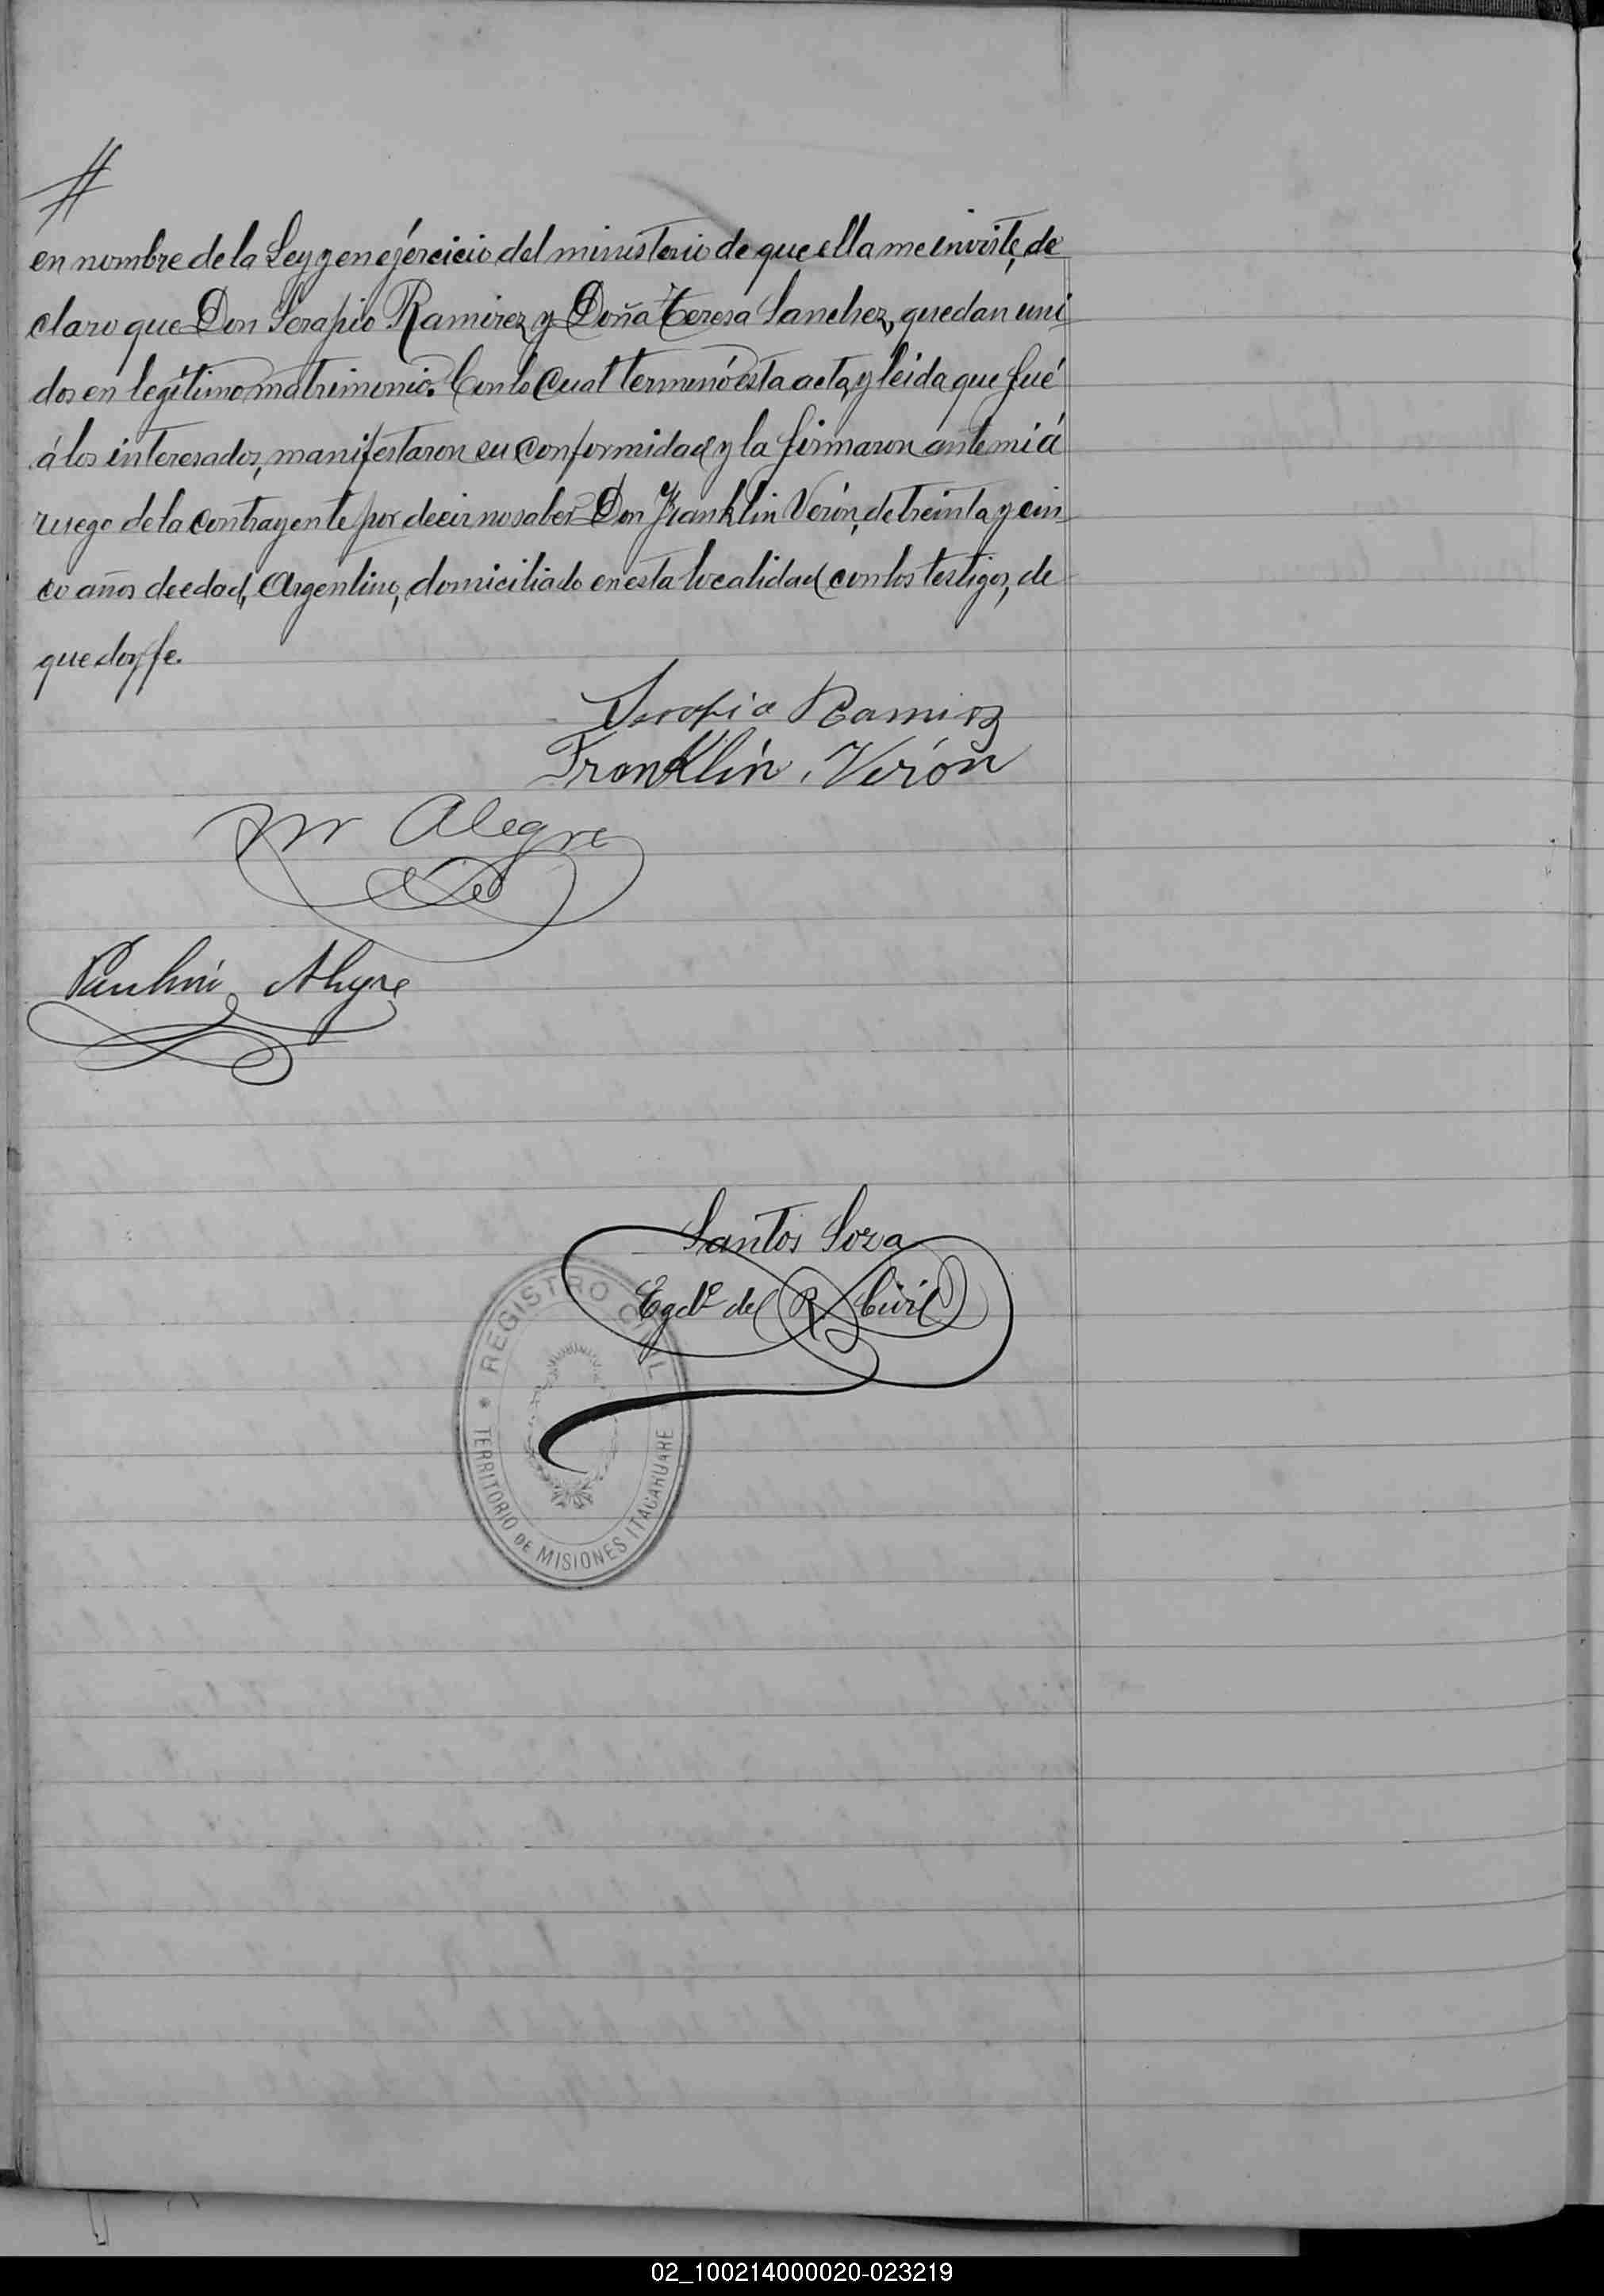 #
en nombre de la Ley y en ejércicio del ministerio de que ella me inviste, de
claro que Don Serapio Ramirez y Doña Teresa Sanchez, quedan uni
dos en legítimo matrimonio. Con lo cual terminó esta acta, y leida que fué
á los interesados, manifestaron su conformidad y la firmaron ante mi á
ruego de la contrayente por decir no saber Don Franklin Verón, de treinta y cin
co años de edad, Argentino, domiciliado en esta localidad con los testigos, de
que doy fe.
Serapio Ramirez
Franklin. Verón
Alegre
Paulino Alegre
Santos Soza
Egdo. del R. Civil
REGISTRO CIVIL
TERRITORIO DE MISIONES ITACARUARE
02_100214000020-023219